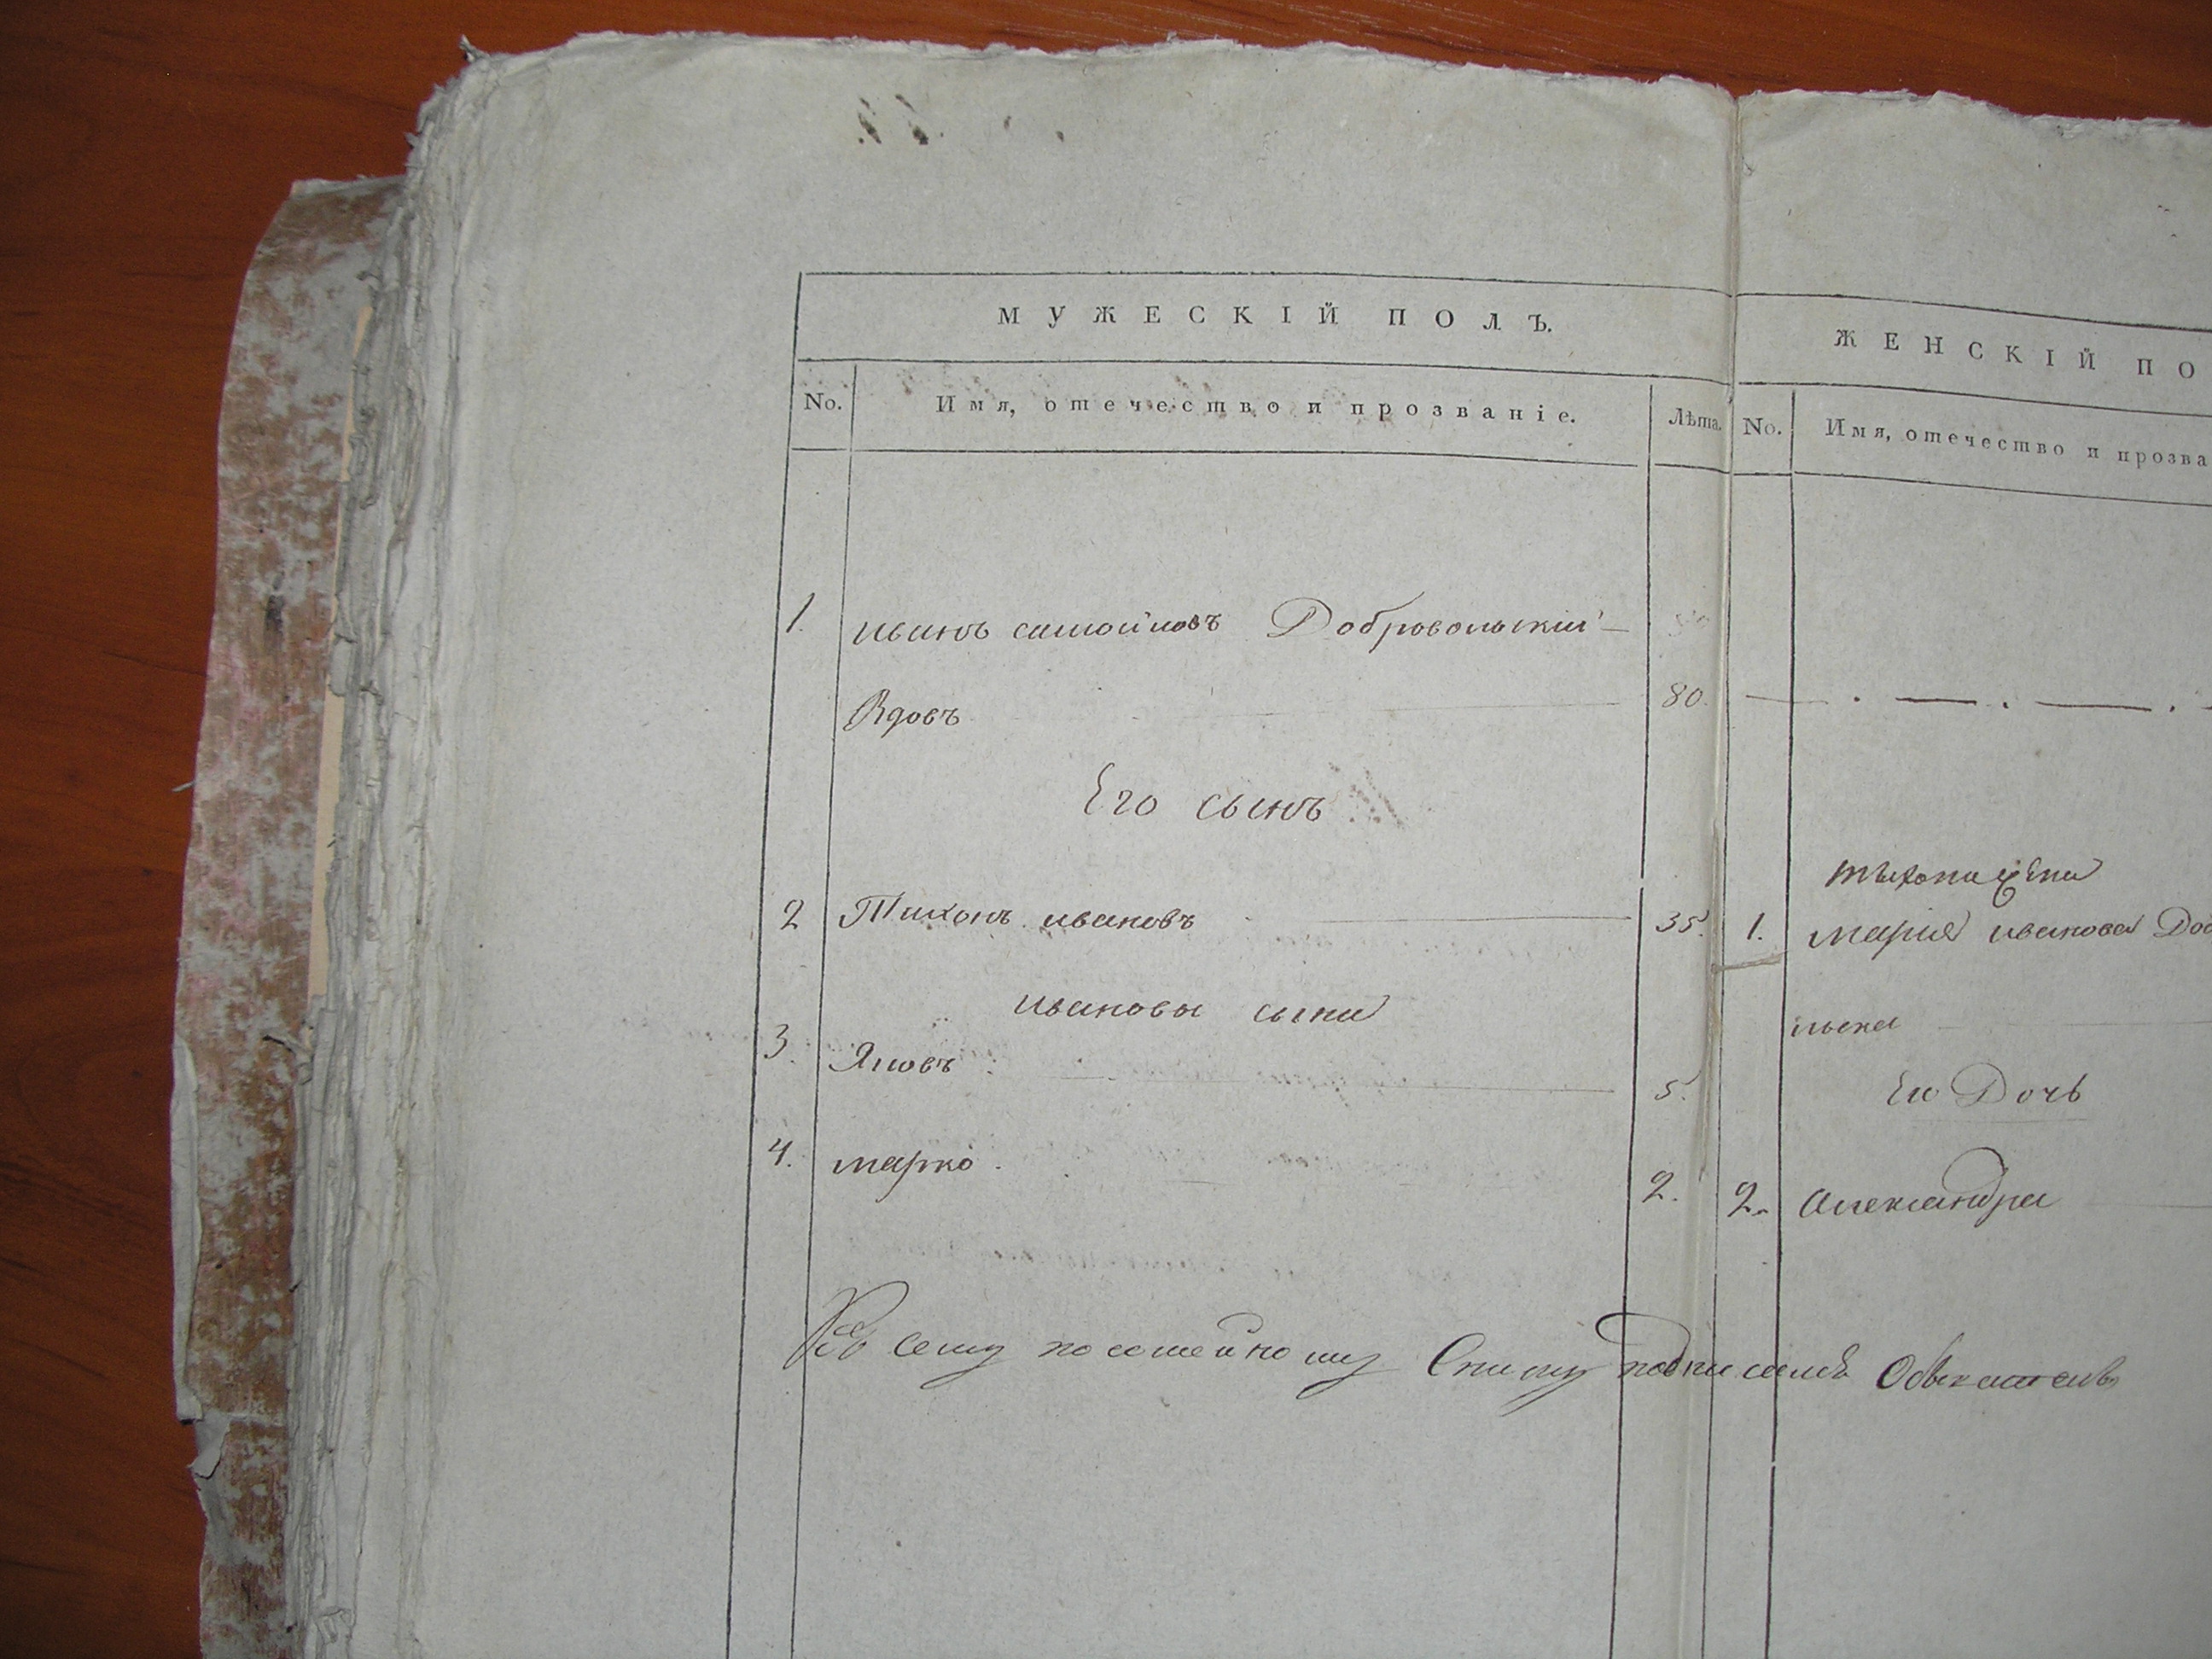 МУЖЕСКІЙ ПОЛЪ.
No.
Имя, отечество и прозваніе.
Лѣта.
1. иванъ самойловъ Добровольскій
Вдовъ 80.
Его сынъ
2 Тихонъ ивановъ 35.
ивановы сыни
3. Яковъ 5.
4. марко 2.
ЖЕНСКІЙ ПО
No.
Имя, отечество и прозва
1. мария иванова Доб
льска
Ея Дочь
2. Александра
Къ сему посемейному Списку подписался Обыватель